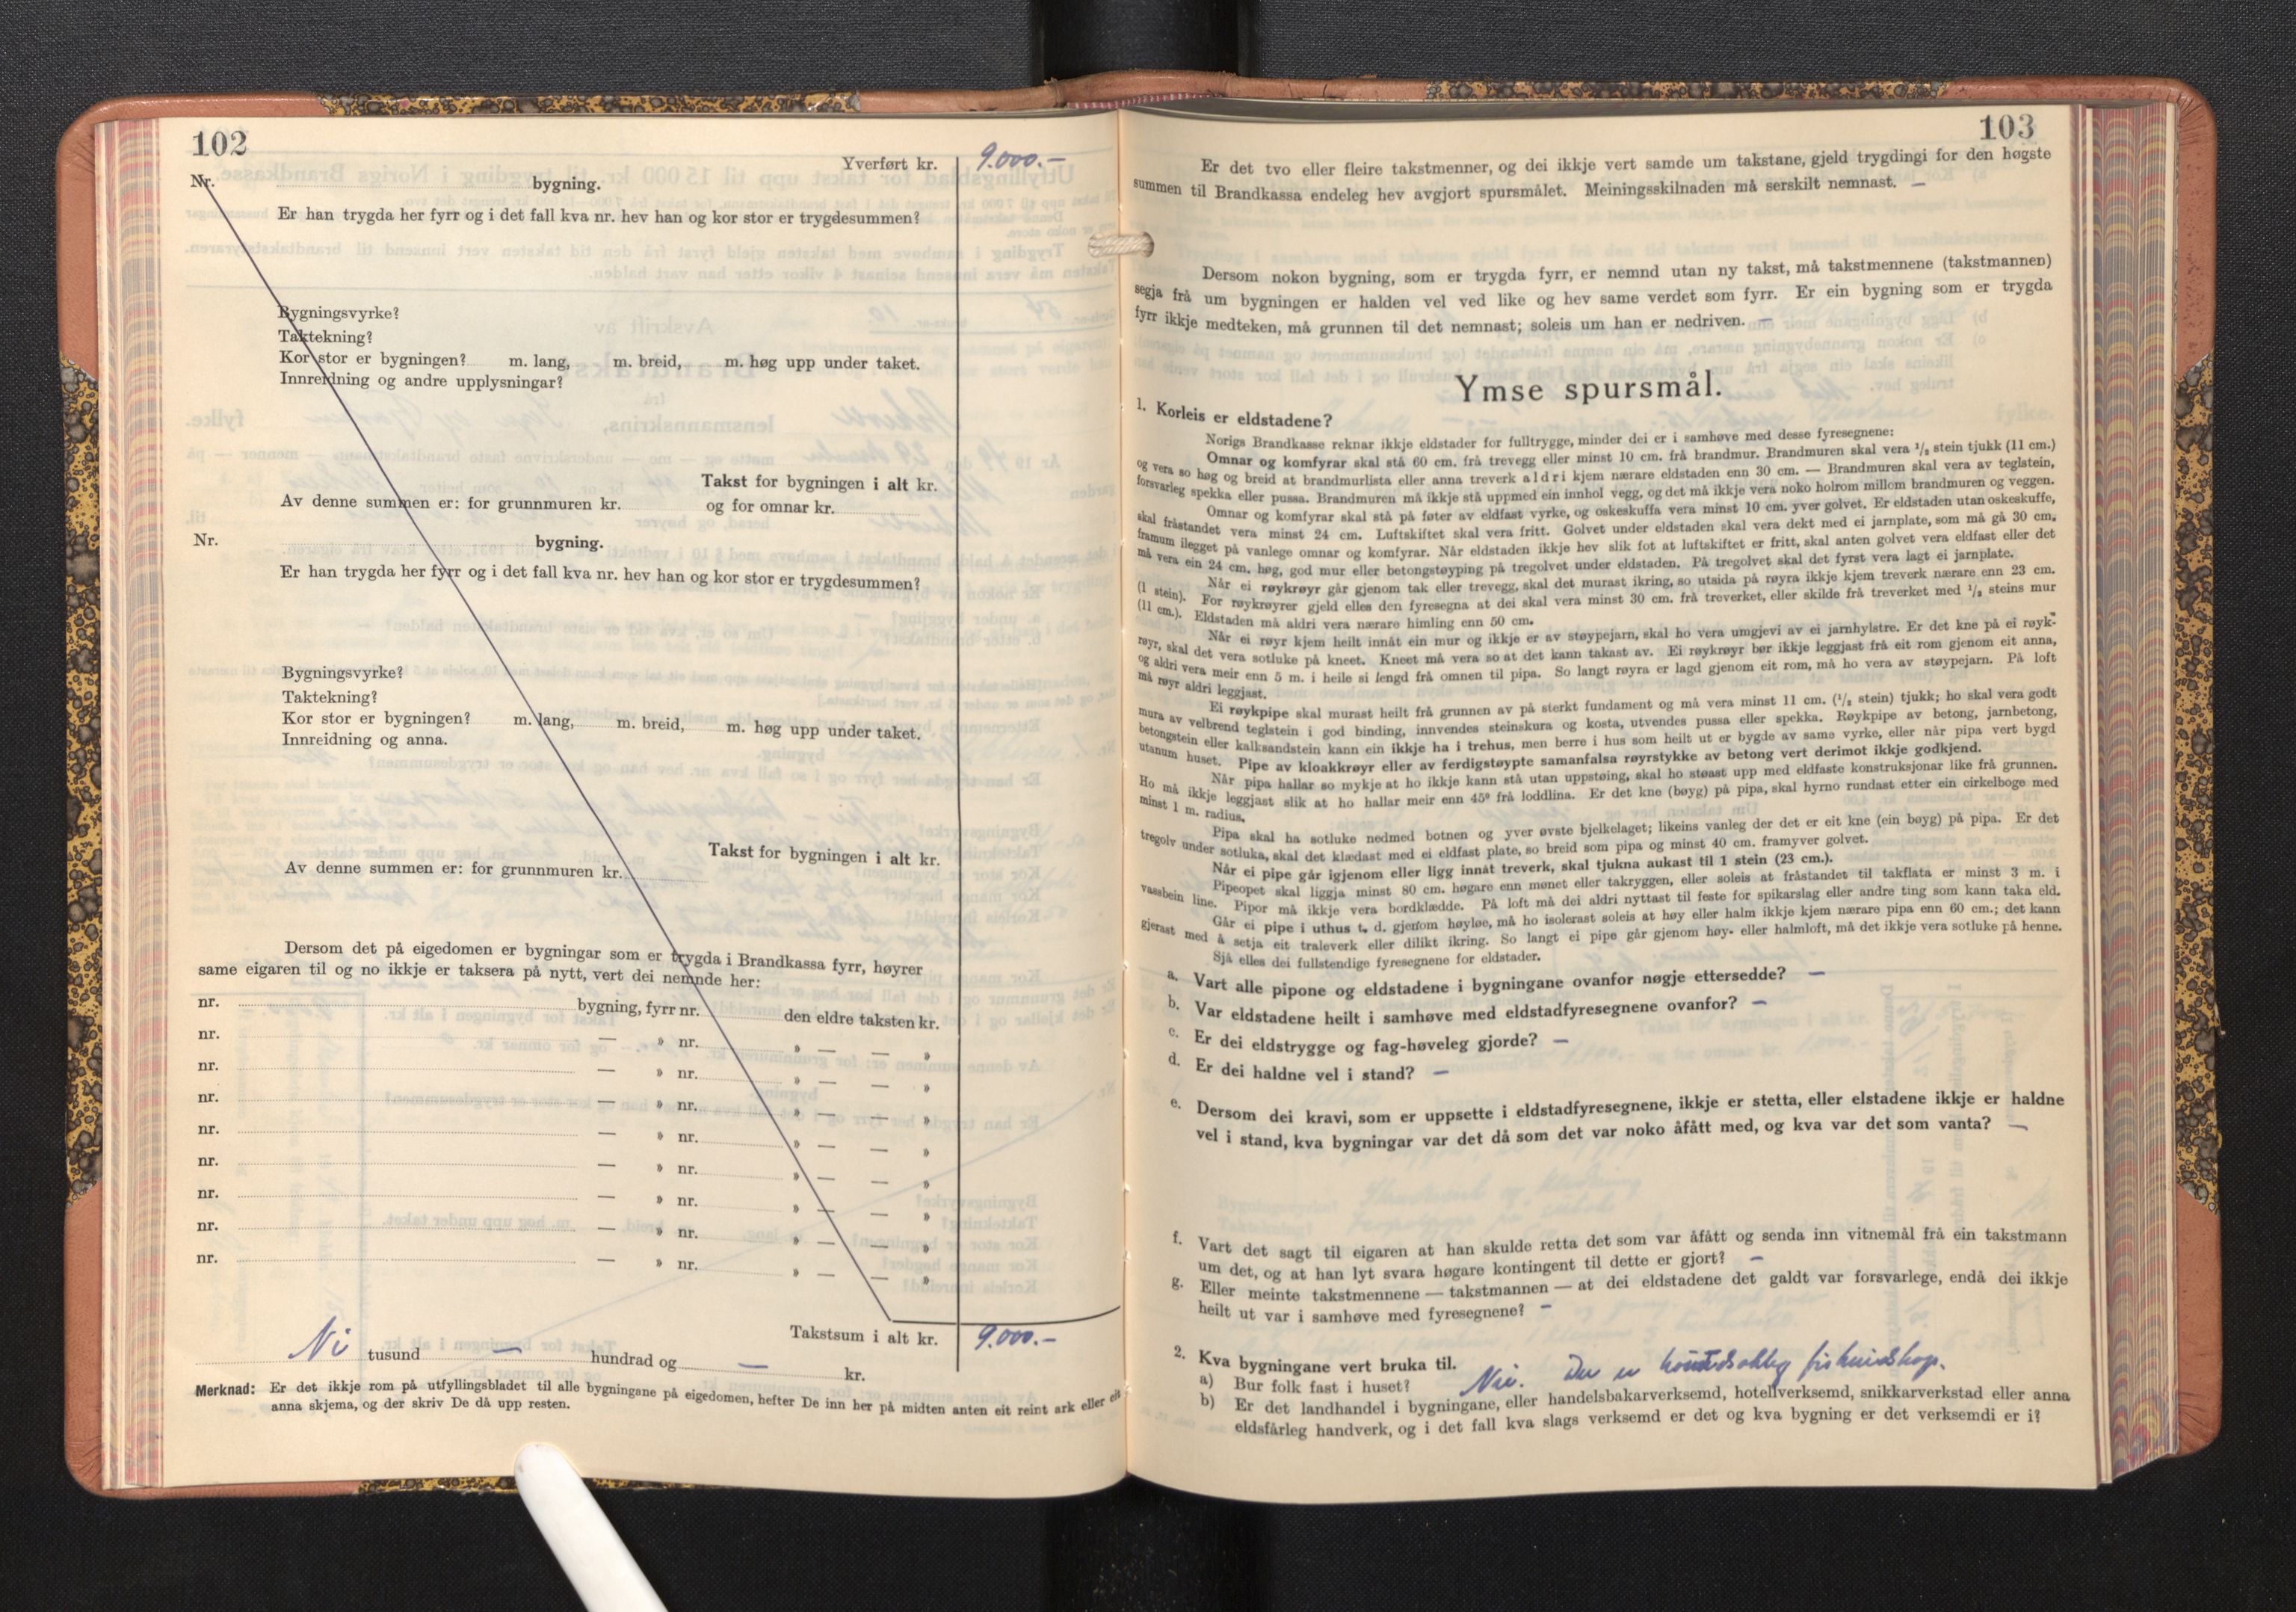 102
Yverført kr. 9.000.—
Nr. bygning.
Er han trygda her fyrr og i det fall kva nr. hev han og kor stor er trygdesummen?
Bygningsvyrke?
Taktekning?
Kor stor er bygningen? m. lang, m. breid, m. høg upp under taket.
Innreidning og andre upplysningar?
Takst for bygningen i alt kr.
Av denne summen er: for grunnmuren kr. og for omnar kr.
Nr. bygning.
Er han trygda her fyrr og i det fall kva nr. hev han og kor stor er trygdesummen?
Bygningsvyrke?
Taktekning?
Kor stor er bygningen? m. lang, m. breid, m. høg upp under taket.
Innreidning og anna.
Takst for bygningen i alt kr.
Av denne summen er: for grunnmuren kr.
Dersom det på eigedomen er bygningar som er trygda i Brandkassa fyrr, høyrer
same eigaren til og no ikkje er taksera på nytt, vert dei nemnde her:
nr. bygning, fyrr nr. den eldre taksten kr.
nr. — » nr. » — — »
nr. — » nr. » — — »
nr. — » nr. » — — »
nr. — » nr. » — — »
nr. — » nr. » — — »
nr. — » nr. » — — »
nr. — » nr. » — — »
nr. — » nr. » — — »
Takstsum i alt kr. 9.000.—
Ni tusund — hundrad og — kr.
Merknad: Er det ikkje rom på utfyllingsbladet til alle bygningane på eigedomen, hefter De inn her på midten anten eit reint ark eller eit
anna skjema, og der skriv De då upp resten.
103
Er det tvo eller fleire takstmenner, og dei ikkje vert samde um takstane, gjeld trygdingi for den høgste
summen til Brandkassa endeleg hev avgjort spursmålet. Meiningsskilnaden må serskilt nemnast. —
Dersom nokon bygning, som er trygda fyrr, er nemnd utan ny takst, må takstmennene (takstmannen)
segja frå um bygningen er halden vel ved like og hev same verdet som fyrr. Er ein bygning som er trygda
fyrr ikkje medteken, må grunnen til det nemnast; soleis um han er nedriven. —
Ymse spursmål.
1. Korleis er eldstadene?
Norigs Brandkasse reknar ikkje eldstader for fulltrygge, minder dei er i samhøve med desse fyresegnene:
Omnar og komfyrar skal stå 60 cm. frå trevegg eller minst 10 cm. frå brandmur. Brandmuren skal vera ½ stein tjukk (11 cm.)
og vera so høg og breid at brandmurlista eller anna treverk aldri kjem nærare eldstaden enn 30 cm. — Brandmuren skal vera av teglstein,
forsvarleg spekka eller pussa. Brandmuren må ikkje stå uppmed ein innhol vegg, og det må ikkje vera noko holrom millom brandmuren og veggen.
Omnar og komfyrar skal stå på føter av eldfast vyrke, og oskeskuffa vera minst 10 cm. yver golvet. Er eldstaden utan oskeskuffe,
skal fråstandet vera minst 24 cm. Luftskiftet skal vera fritt. Golvet under eldstaden skal vera dekt med ei jarnplate, som må gå 30 cm.
framum ilegget på vanlege omnar og komfyrar. Når eldstaden ikkje hev slik fot at luftskiftet er fritt, skal anten golvet vera eldfast eller det
må vera ein 24 cm. høg, god mur eller betongstøyping på tregolvet under eldstaden. På tregolvet skal det fyrst vera lagt ei jarnplate.
Når ei røykrøyr går gjenom tak eller trevegg, skal det murast ikring, so utsida på røyra ikkje kjem treverk nærare enn 23 cm.
(1 stein). For røykrøyrer gjeld elles den fyresegna at dei skal vera minst 30 cm. frå treverket, eller skilde frå treverket med ½ steins mur
(11 cm.). Eldstaden må aldri vera nærare himling enn 50 cm.
Når ei røyr kjem heilt innåt ein mur og ikkje er av støypejarn, skal ho vera umgjevi av ei jarnhylstre. Er det kne på ei røyk-
røyr, skal det vera sotluke på kneet. Kneet må vera so at det kann takast av. Ei røykrøyr bør ikkje leggjast frå eit rom gjenom eit anna,
og aldri vera meir enn 5 m. i heile si lengd frå omnen til pipa. So langt røyra er lagd gjenom eit rom, må ho vera av støypejarn. På loft
må røyr aldri leggjast.
Ei røykpipe skal murast heilt frå grunnen av på sterkt fundament og må vera minst 11 cm. (½ stein) tjukk; ho skal vera godt
mura av velbrend teglstein i god binding, innvendes steinskura og kosta, utvendes pussa eller spekka. Røykpipe av betong, jarnbetong,
betongstein eller kalksandstein kann ein ikkje ha i trehus, men berre i hus som heilt ut er bygde av same vyrke, eller når pipa vert bygd
utanum huset. Pipe av kloakkrøyr eller av ferdigstøypte samanfalsa røyrstykke av betong vert derimot ikkje godkjend.
Når pipa hallar so mykje at ho ikkje kann stå utan uppstøing, skal ho støast upp med eldfaste konstruksjonar like frå grunnen.
Ho må ikkje leggjast slik at ho hallar meir enn 45º frå loddlina. Er det kne (bøyg) på pipa, skal hyrno rundast etter ein cirkelboge med
minst 1 m. radius.
Pipa skal ha sotluke nedmed botnen og yver øvste bjelkelaget; likeins vanleg der det er eit kne (ein bøyg) på pipa. Er det
tregolv under sotluka, skal det klædast med ei eldfast plate, so breid som pipa og minst 40 cm. framyver golvet.
Når ei pipe går igjenom eller ligg innåt treverk, skal tjukna aukast til 1 stein (23 cm.).
Pipeopet skal liggja minst 80 cm. høgare enn mønet eller takryggen, eller soleis at fråstandet til takflata er minst 3 m. i
vassbein line. Pipor må ikkje vera bordklædde. På loft må dei aldri nyttast til feste for spikarslag eller andre ting som kann taka eld.
Går ei pipe i uthus t. d. gjenom høyløe, må ho isolerast soleis at høy eller halm ikkje kjem nærare pipa enn 60 cm.; det kann
gjerast med å setja eit traleverk eller dilikt ikring. So langt ei pipe går gjenom høy- eller halmloft, må det ikkje vera sotluke på henne.
Sjå elles dei fullstendige fyresegnene for eldstader.
a. Vart alle pipone og eldstadene i bygningane ovanfor nøgje ettersedde? —
b. Var eldstadene heilt i samhøve med eldstadfyresegnene ovanfor? —
c. Er dei eldstrygge og fag-høveleg gjorde? —
d. Er dei haldne vel i stand? —
e. Dersom dei kravi, som er uppsette i eldstadfyresegnene, ikkje er stetta, eller elstadene ikkje er haldne
vel i stand, kva bygningar var det då som det var noko åfått med, og kva var det som vanta? —
f. Vart det sagt til eigaren at han skulde retta det som var åfått og senda inn vitnemål frå ein takstmann
um det, og at han lyt svara høgare kontingent til dette er gjort? —
g. Eller meinte takstmennene — takstmannen — at dei eldstadene det galdt var forsvarlege, endå dei ikkje
heilt ut var i samhøve med fyresegnene? —
2. Kva bygningane vert bruka til.
a) Bur folk fast i huset? Nei.
b) Er det landhandel i bygningane, eller handelsbakarverksemd, hotellverksemd, snikkarverkstad eller anna
eldsfårleg handverk, og i det fall kva slags verksemd er det og kva bygning er det verksemdi er i?